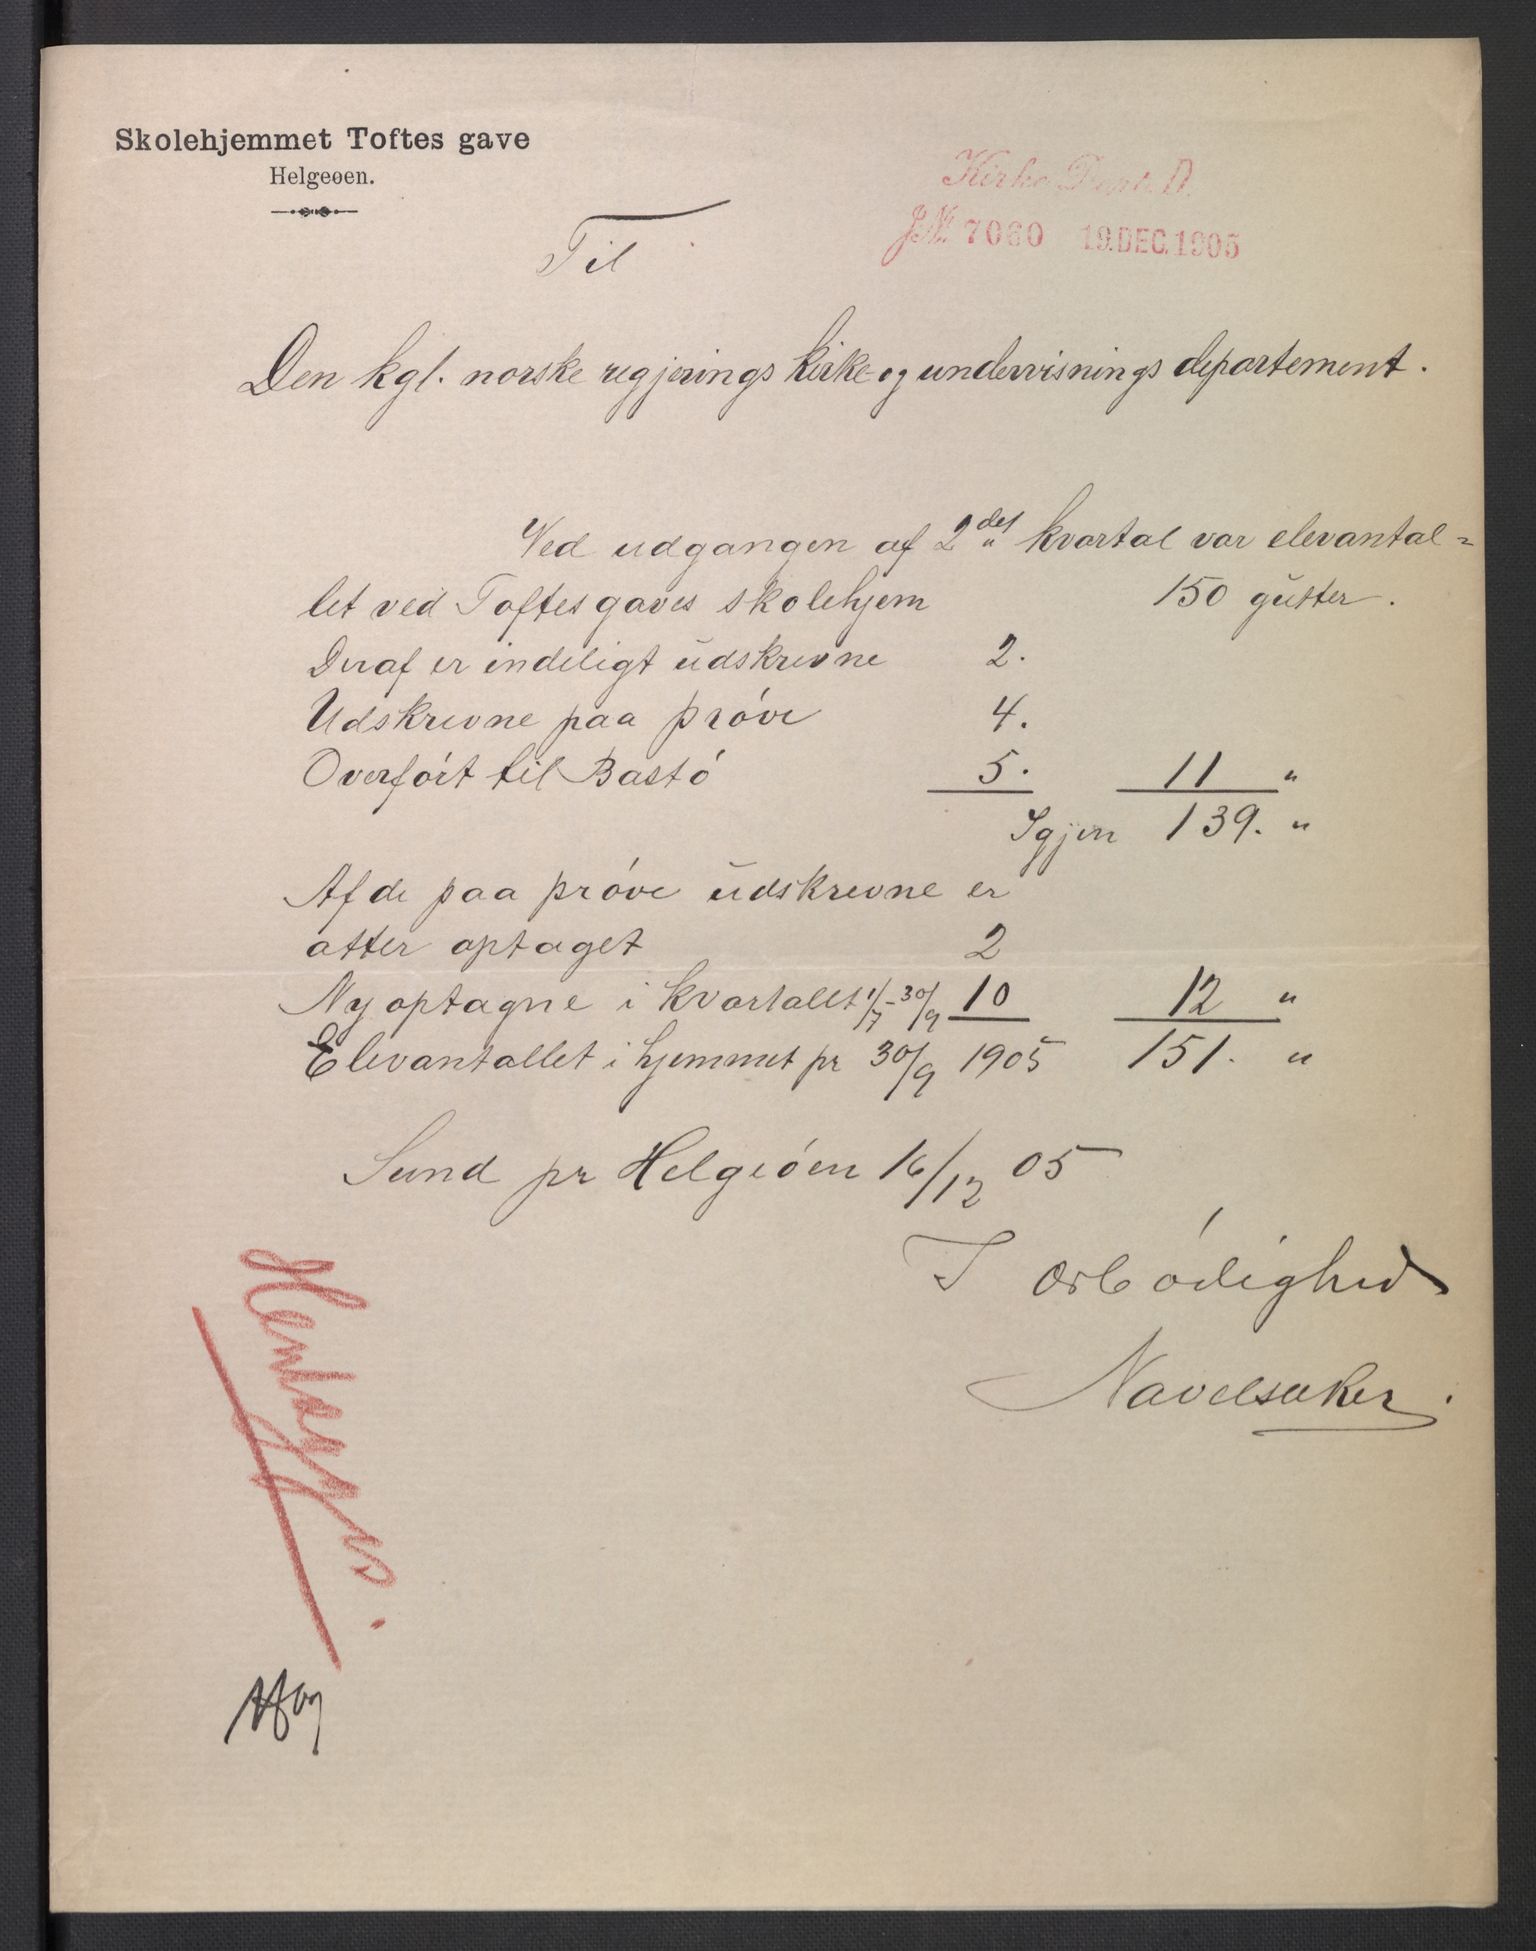 Skolehjemmet Toftes gave
Helgeøen.
Kirke Dept. D.
J№ 7060 19.DEC.1905
Til
Den kgl. norske regjerings kirke- og undervisnings departement.
Ved udgangen af 2det kvartal var elevantal=
let ved Toftes gaves skolehjem 150 gutter.
Deraf er endeligt udskrevne 2.
Udskrevne paa prøve 4.
Overført til Bastø 5. 11 "
Igjen 139. "
Af de paa prøve udskrevne er
atter optaget 2
Ny optagne i kvartalet 1/7-30/9 10 12 "
Elevantallet i hjemmet pr 30/9 1905 151. "
Sund pr Helgeøen 16/12 05
I ærbødighed
Navelsaker.
Henlægges.